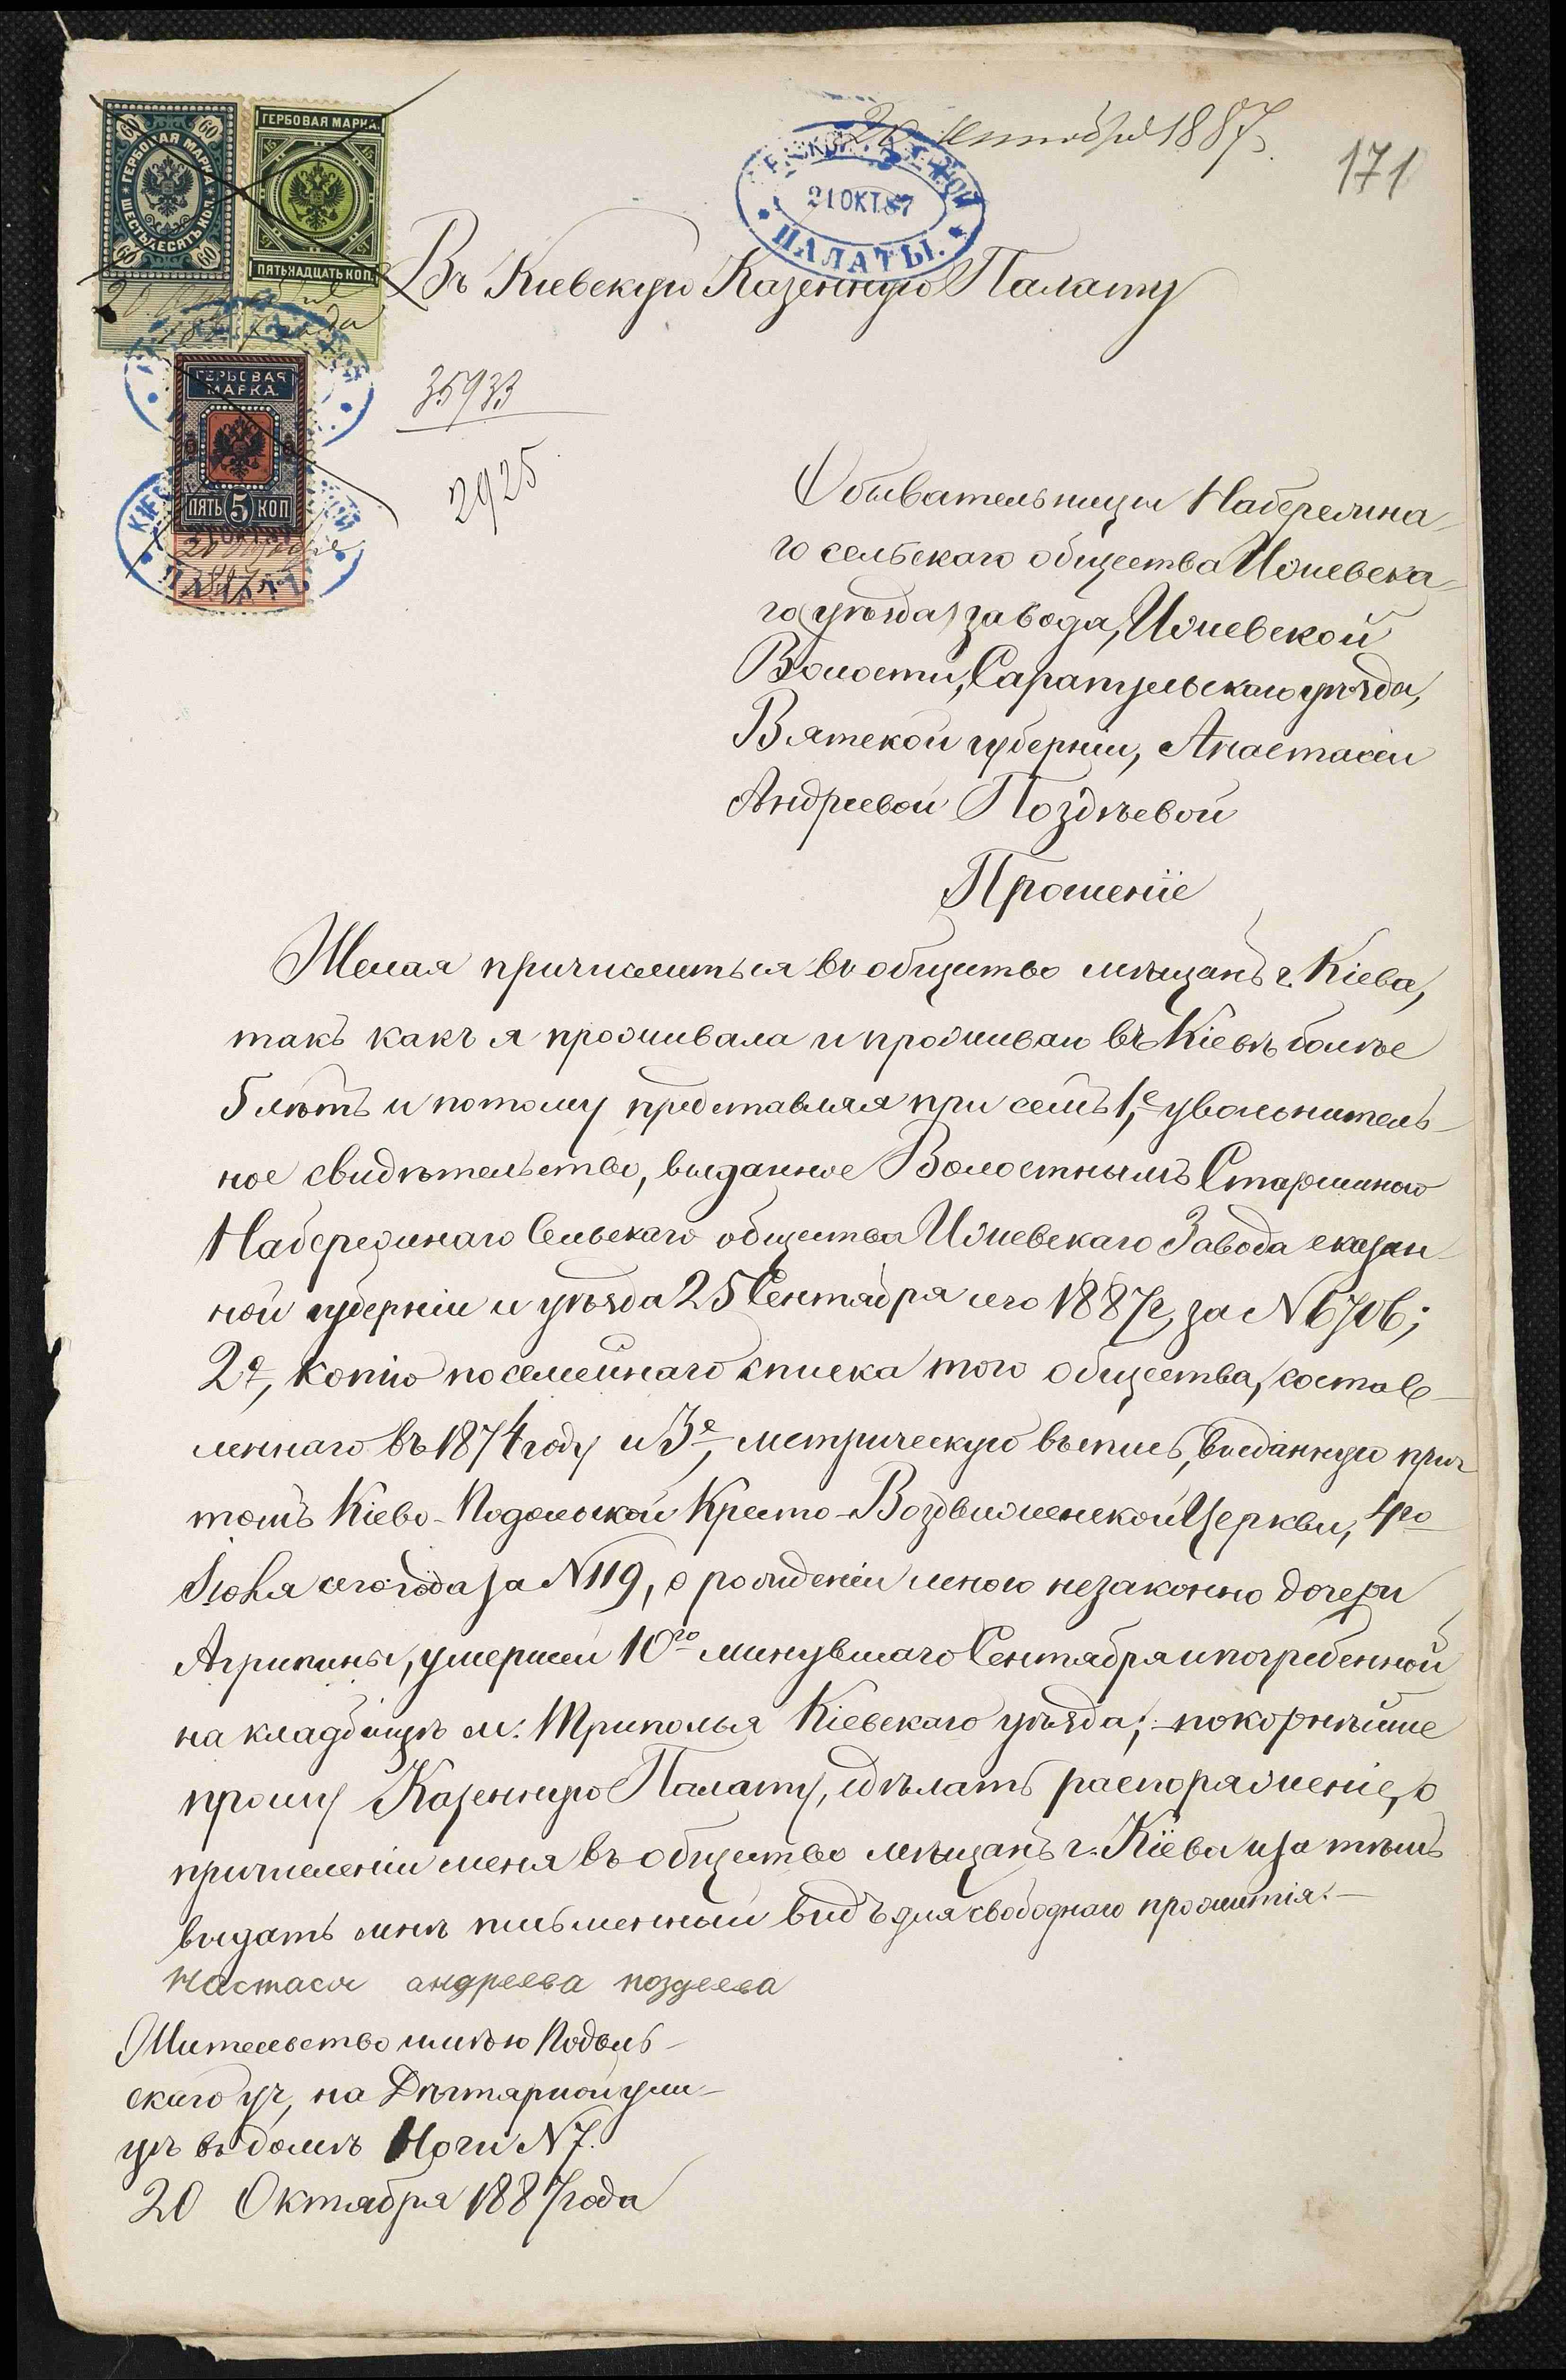 20 октября 1887 г.
171
ГЕРБОВАЯ МАРКА
60 60
ШЕСТЬДЕСЯТЬ КОП.
60 60
ГЕРБОВАЯ МАРКА.
15 15
15 15
ПЯТЬНАДЦАТЬ КОП.
21 ОКТ. 87
ПАЛАТЫ.
Въ Киевскую Казенную Палату
ГЕРБОВАЯ
МАРКА.
ПЯТЬ 5 КОП
35933
2925
Обывательницы Набережна-
го сельскаго общества Ижевска-
го (уѣзда) завода, Ижевской
Волости, Сарапульскаго уѣзда,
Вятской губерніи, Анастасіи
Андреевой Поздѣевой
Прошеніе
Желая причислиться въ общество мѣщанъ г. Кіева,
такъ какъ я проживала и проживаю въ Кіевѣ болѣе
5 лѣтъ и потому представляя при семъ 1е, увольнитель-
ное свидѣтельство, выданное Волостнымъ Старшиною
Набережнаго Сельскаго общества Ижевскаго Завода сказан-
ной губерніи и уѣзда 25 Сентября сего 1887 г, за N 6706;
2е, копію посемейнаго списка того общества, состав-
леннаго въ 1874 году и 3е, метрическую выпись, выданную прич-
томъ Кіево-Подольской Кресто-Воздвиженской Церкви, 4го
Іюня сего года за N 119, о рожденіи мною незаконно дочери
Агрипины, умершей 10го минувшаго Сентября и погребенной
на кладбищѣ м. Триполья Кіевскаго уѣзда; покорнѣйше
прошу Казенную Палату, сдѣлать распоряженіе, о
причисленіи меня въ общество мѣщанъ г. Кіева и за тѣмъ
выдать мнѣ письменный видъ для свободнаго прожитія.-
Настася андреева поздеева
Жительство имѣю Подоль-
скаго уч, на Дѣгтярной ули-
цѣ въ домѣ Ночи N 7.
20 Октября 1887 года